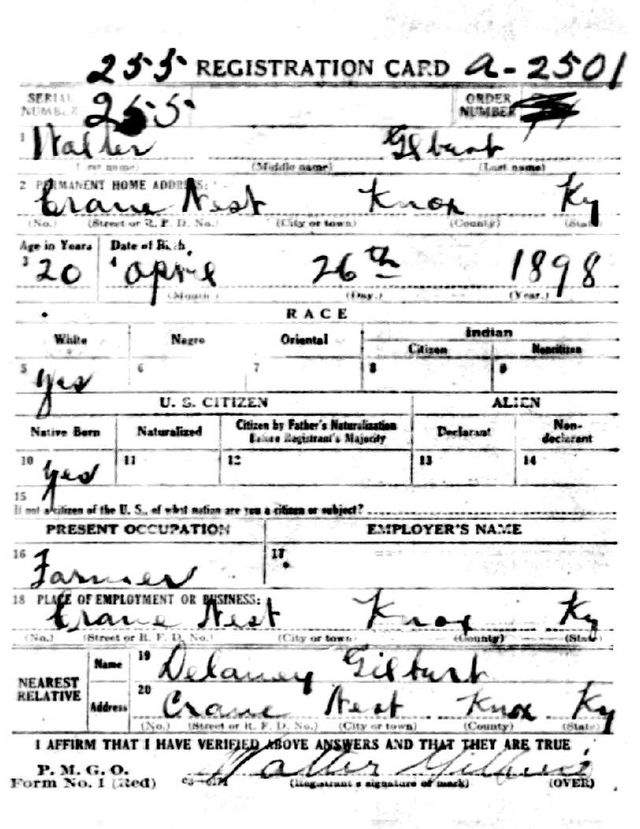 255 REGISTRATION CARD a-2501
SERIAL NUMBER 255 ORDER NUMBER
1 Walter Gilburt
(First name) (Middle name) (Last name)
2 PERMANENT HOME ADDRESS:
Crane Nest Knox Ky
(No.) (Street or R. F. D. No.) (City or town) (County) (State)
Age in Years Date of Birth
3 20 4 April 26th 1898
(Month) (Day.) (Year.)
RACE
White Negro Oriental Indian
Citizen Noncitizen
5 yes 6 7 8 9
U. S. CITIZEN ALIEN
Native Born Naturalized Citizen by Father's Naturalization Before Registrant's Majority Declarant Non-declarant
10 yes 11 12 13 14
15
If not a citizen of the U. S., of what nation are you a citizen or subject?
PRESENT OCCUPATION EMPLOYER'S NAME
16 Farmer 17
18 PLACE OF EMPLOYMENT OR BUSINESS:
Crane Nest Knox Ky
(No.) (Street or R. F. D. No.) (City or town) (County) (State)
NEAREST RELATIVE Name 19 Delaney Gilburt
Address 20 Crane Nest Knox Ky
(No.) (Street or R. F. D. No.) (City or town) (County) (State)
I AFFIRM THAT I HAVE VERIFIED ABOVE ANSWERS AND THAT THEY ARE TRUE
P. M. G. O.
Form No. 1 (Red) Walter Gilburt
(Registrant's signature or mark) (OVER)